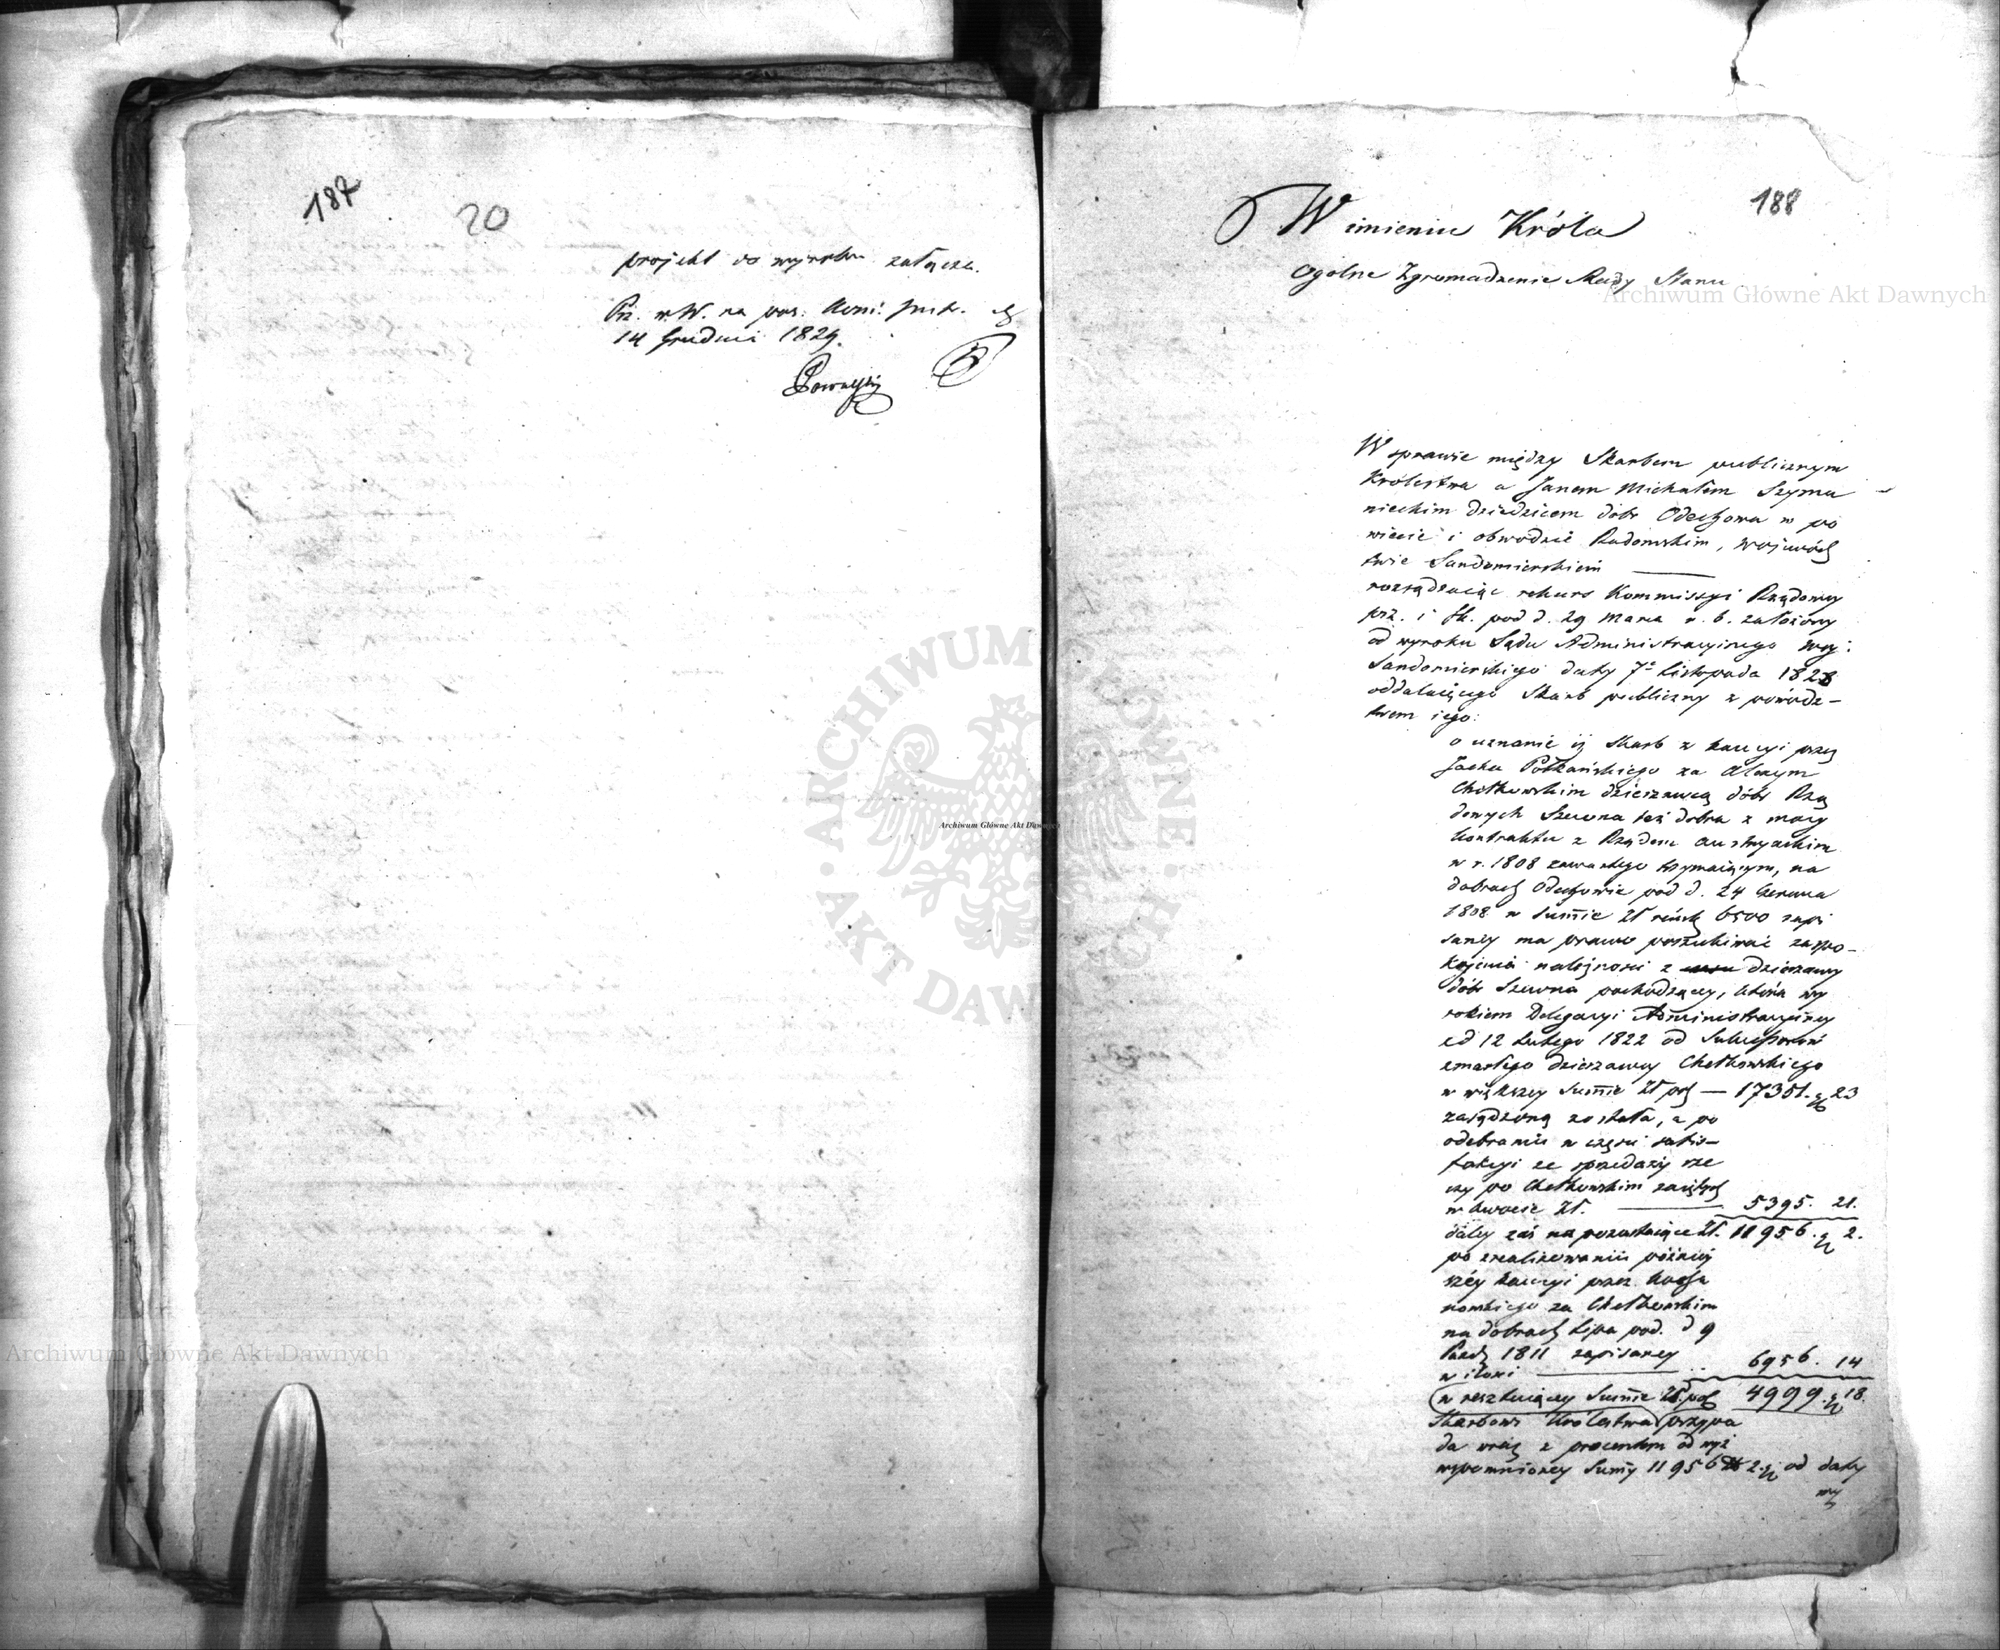 187
20
projekt do wyroku załącza.
14 Grudnia 1829.
188
W imieniu Króla
Ogólne Zgromadzenie Rady Stanu
W sprawie między Skarbem publicznym
Królestwa a Janem Michałem Szyma
nieckim dziedzicem dóbr Odechowa w po
wiecie i obwodzie Radomskim, Wojewódz
twie Sandomierskiem
rozsądzaiąc rekurs Kommissyi Rządowey
prz. i sk. pod d. 29 Marca r. b. założony
od wyroku Sądu Administracyinego Woj:
Sandomierskiego daty 7º Listopada 1828
oddalaiącego Skarb publiczny z powódz-
twem iego:
o uznanie iż skarb z kaucyi przez
Jacka Potkańskiego za Aloizym
Chotkowskim dzierzawcą dóbr Rzą
dowych Szewna też dobra z mocy
kontraktu z Rządem austryackim
w r. 1808 zawartego trzymaiącym, na
dobrach Odechowie pod d. 24 Czerwca
1808 w Summie Zł reńsk 6500 zapi
saney ma prawo poszukiwać zaspo-
kojenia należności z dzierzawy
dóbr Szewna pochodzącey, która wy
rokiem Delegacyi Administracyiney
z d 12 Lutego 1822 od Sukcessorów
zmarłego dzierzawcy Chotkowskiego
w większey Summie Zł pol — 17351. g 23
zasądzoną została, a po
odebraniu w części satis-
fakcyi ze sprzedaży rze
czy po Chotkowskim zaiętych
w kwocie Zł. 5395. 21.
daley zaś na pozostaiące Zł. 11956. g 2.
po zrealizowaniu późniey
széy kaucyi przez Kocha
nowskiego za Chotkowskim
na dobrach Lipa pod. d 9
Paźdz 1811 zapisaney
w ilości 6956. 14
w resztuiącey Summie Zł. pol 4999. g 18.
Skarbowi Królestwa przypa
da wraz z procentem od wyż
wspomnioney Summy 11956 Zł 2. g od daty
wy
Archiwum Główne Akt Dawnych
Archiwum Główne Akt Dawnych
Archiwum Główne Akt Dawnych
ARCHIWUM GŁÓWNE AKT DAWNYCH